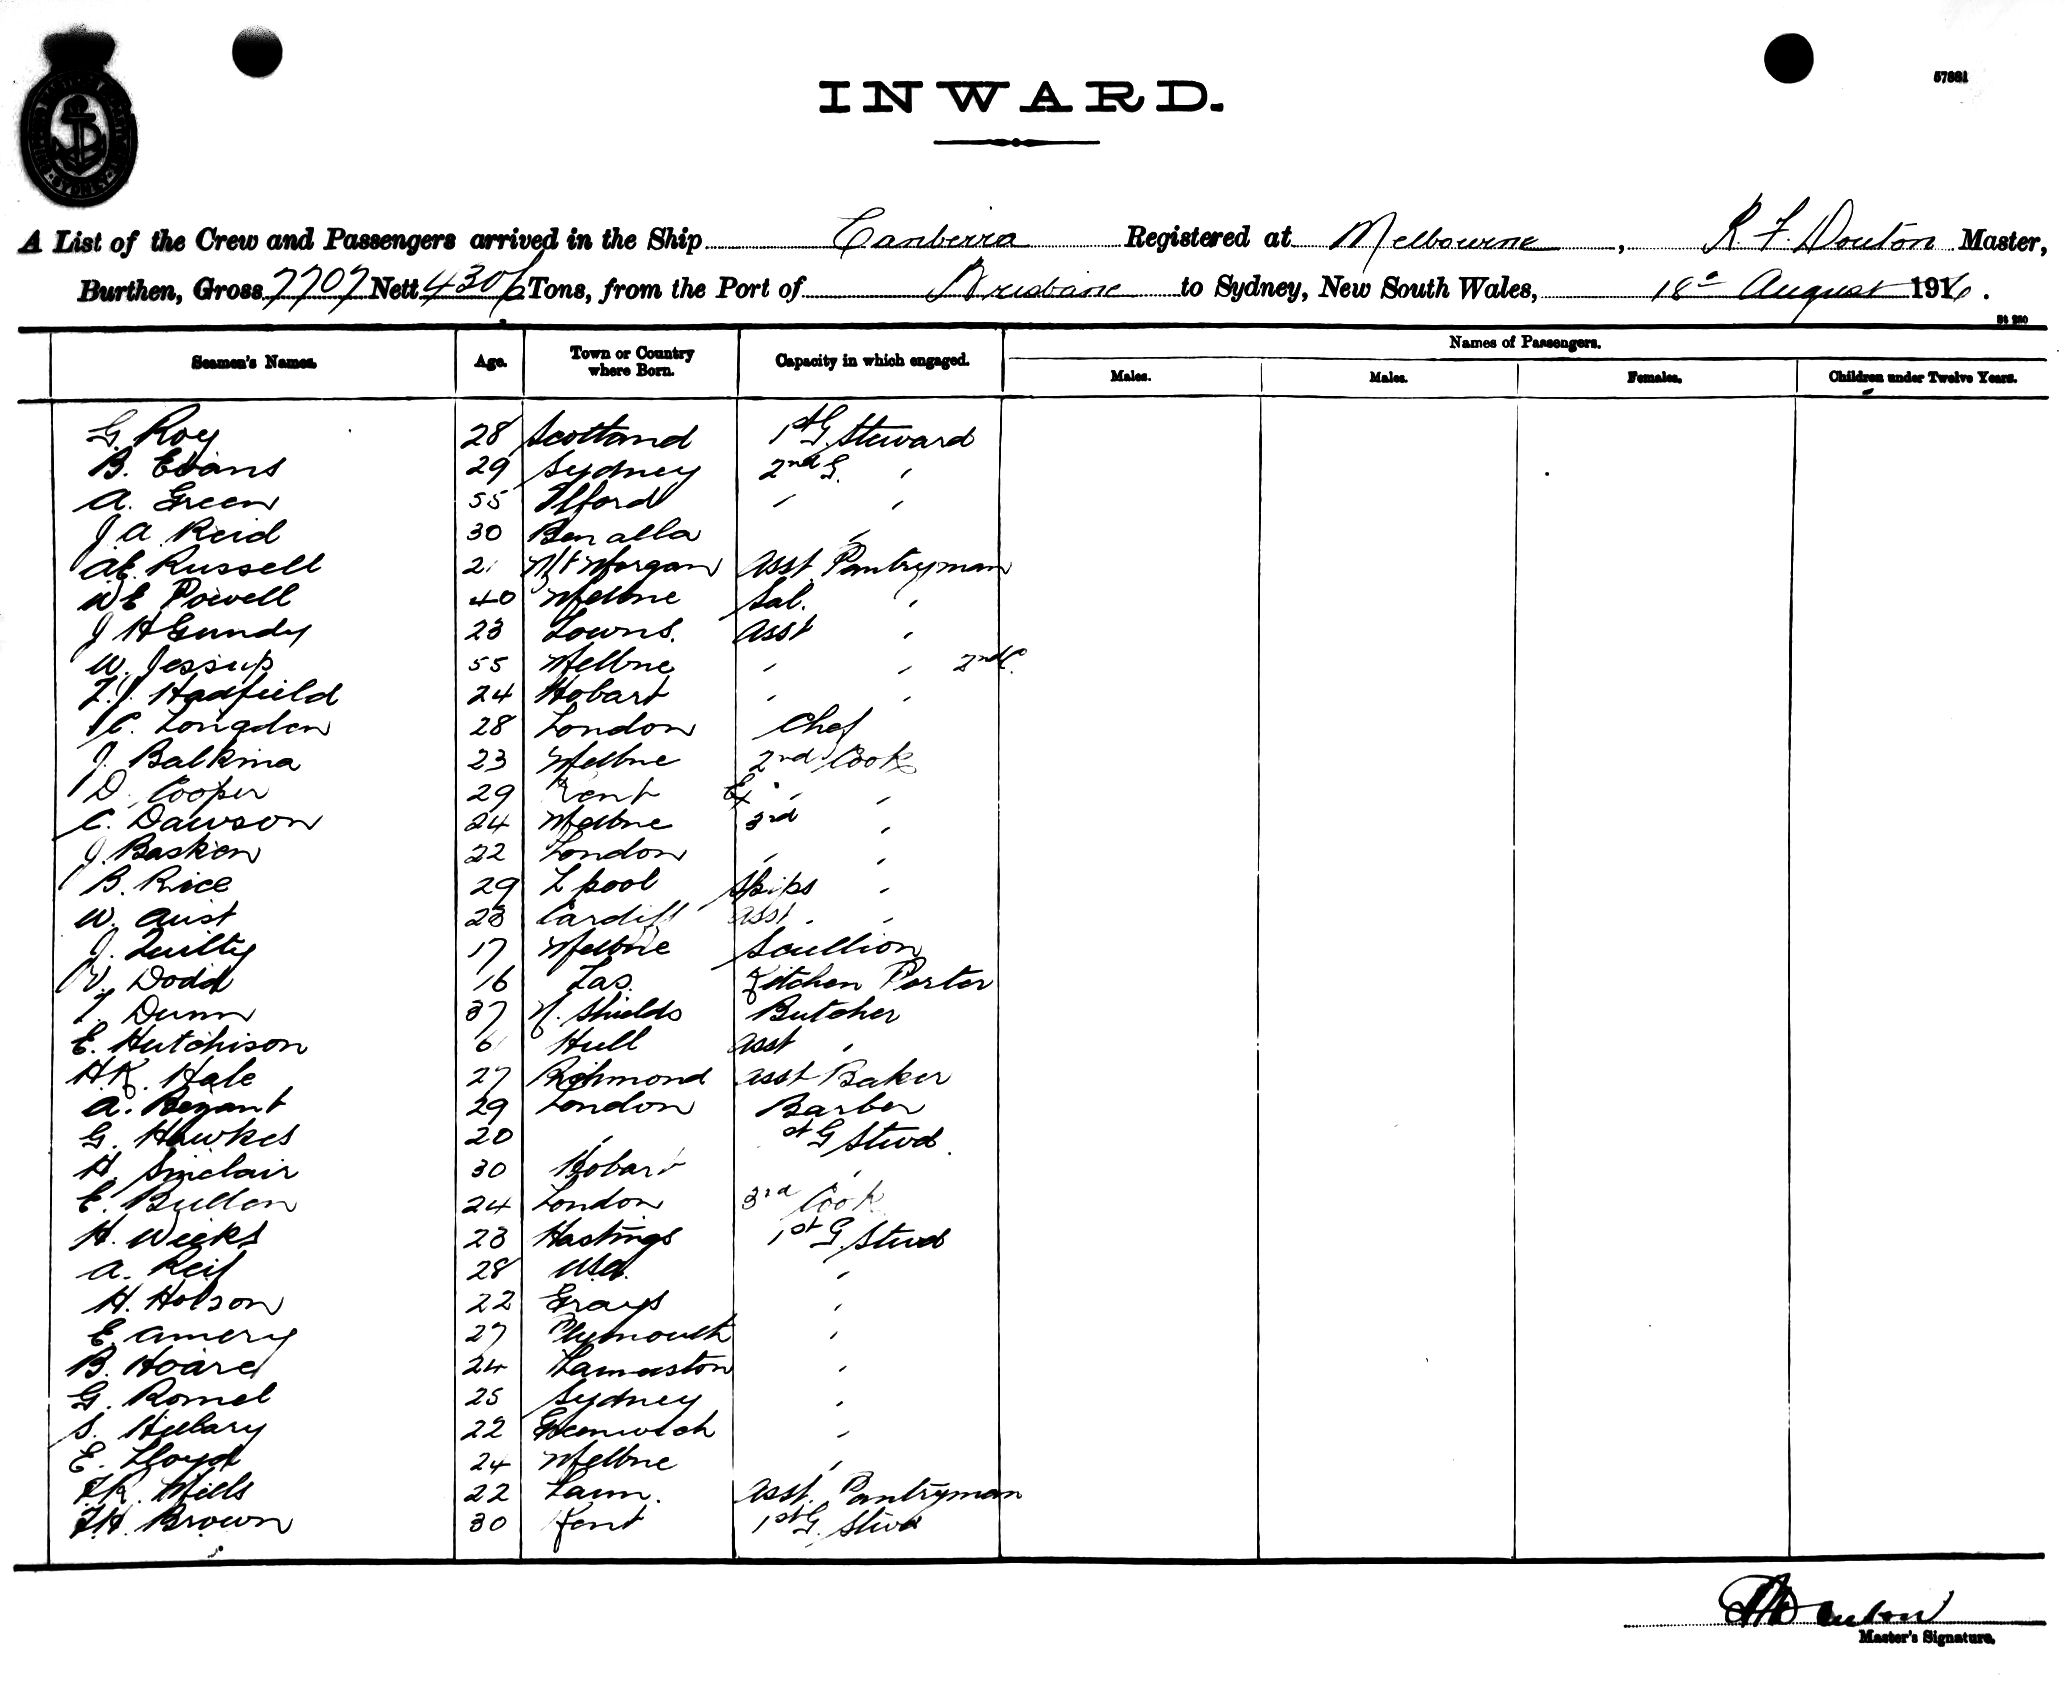 INWARD.
57881
A List of the Crew and Passengers arrived in the Ship Canberra Registered at Melbourne, R. F. Douton Master,
Burthen, Gross 7707 Nett 4306 Tons, from the Port of Brisbane to Sydney, New South Wales, 18th August 1916.
Seamen's Names. Age. Town or Country where Born. Capacity in which engaged. Names of Passengers.
Males. Males. Females. Children under Twelve Years.
G. Roy 28 Scotland 1st G. Steward
B. Evans 29 Sydney 2nd G. "
A. Green 55 Ilford " "
J. A. Reid 30 Benalla "
Russell Mt Morgan Asst Pantryman
W E Powell 40 Melbne Sal. "
J H Gundy 23 Towns. Asst "
W. Jessup 55 Melbne " " 2nd C.
Hadfield 24 Hobart " "
C. Longden 28 London Chef
J. Balkma 23 Melbne 2nd Cook
D. Cooper 29 Kent Ex " "
C. Dawson 24 Melbne 3rd "
J. Basken 22 London " "
B. Rice 29 L'pool Ships "
W. Aust 28 Cardiff Asst. "
J. Quilty 17 Melbne Scullion
V. Dodd 16 Tas. Kitchen Porter
T. Dunn 37 N. Shields Butcher
E. Hutchison Hull Asst "
H.K. Hale 27 Richmond Asst Baker
A. Bryant 29 London Barber
G. Hawkes 20 " st G Stwd.
H. Sinclair 30 Hobart "
E. Bullen 24 London 3rd Cook
H. Weeks 23 Hastings 1st G. Stwd
A. Reif 28 USA. "
H. Hobson 22 Grays "
E. Amery 27 Plymouth "
B. Hoare 24 "
G. Romel 25 Sydney "
S. Hillary 22 Greenwich "
E. Lloyd 24 Melbne "
F.R. Mills 22 Laun. Asst. Pantryman
F.H. Brown 30 Kent 1st G. Stwd
Master's Signature.